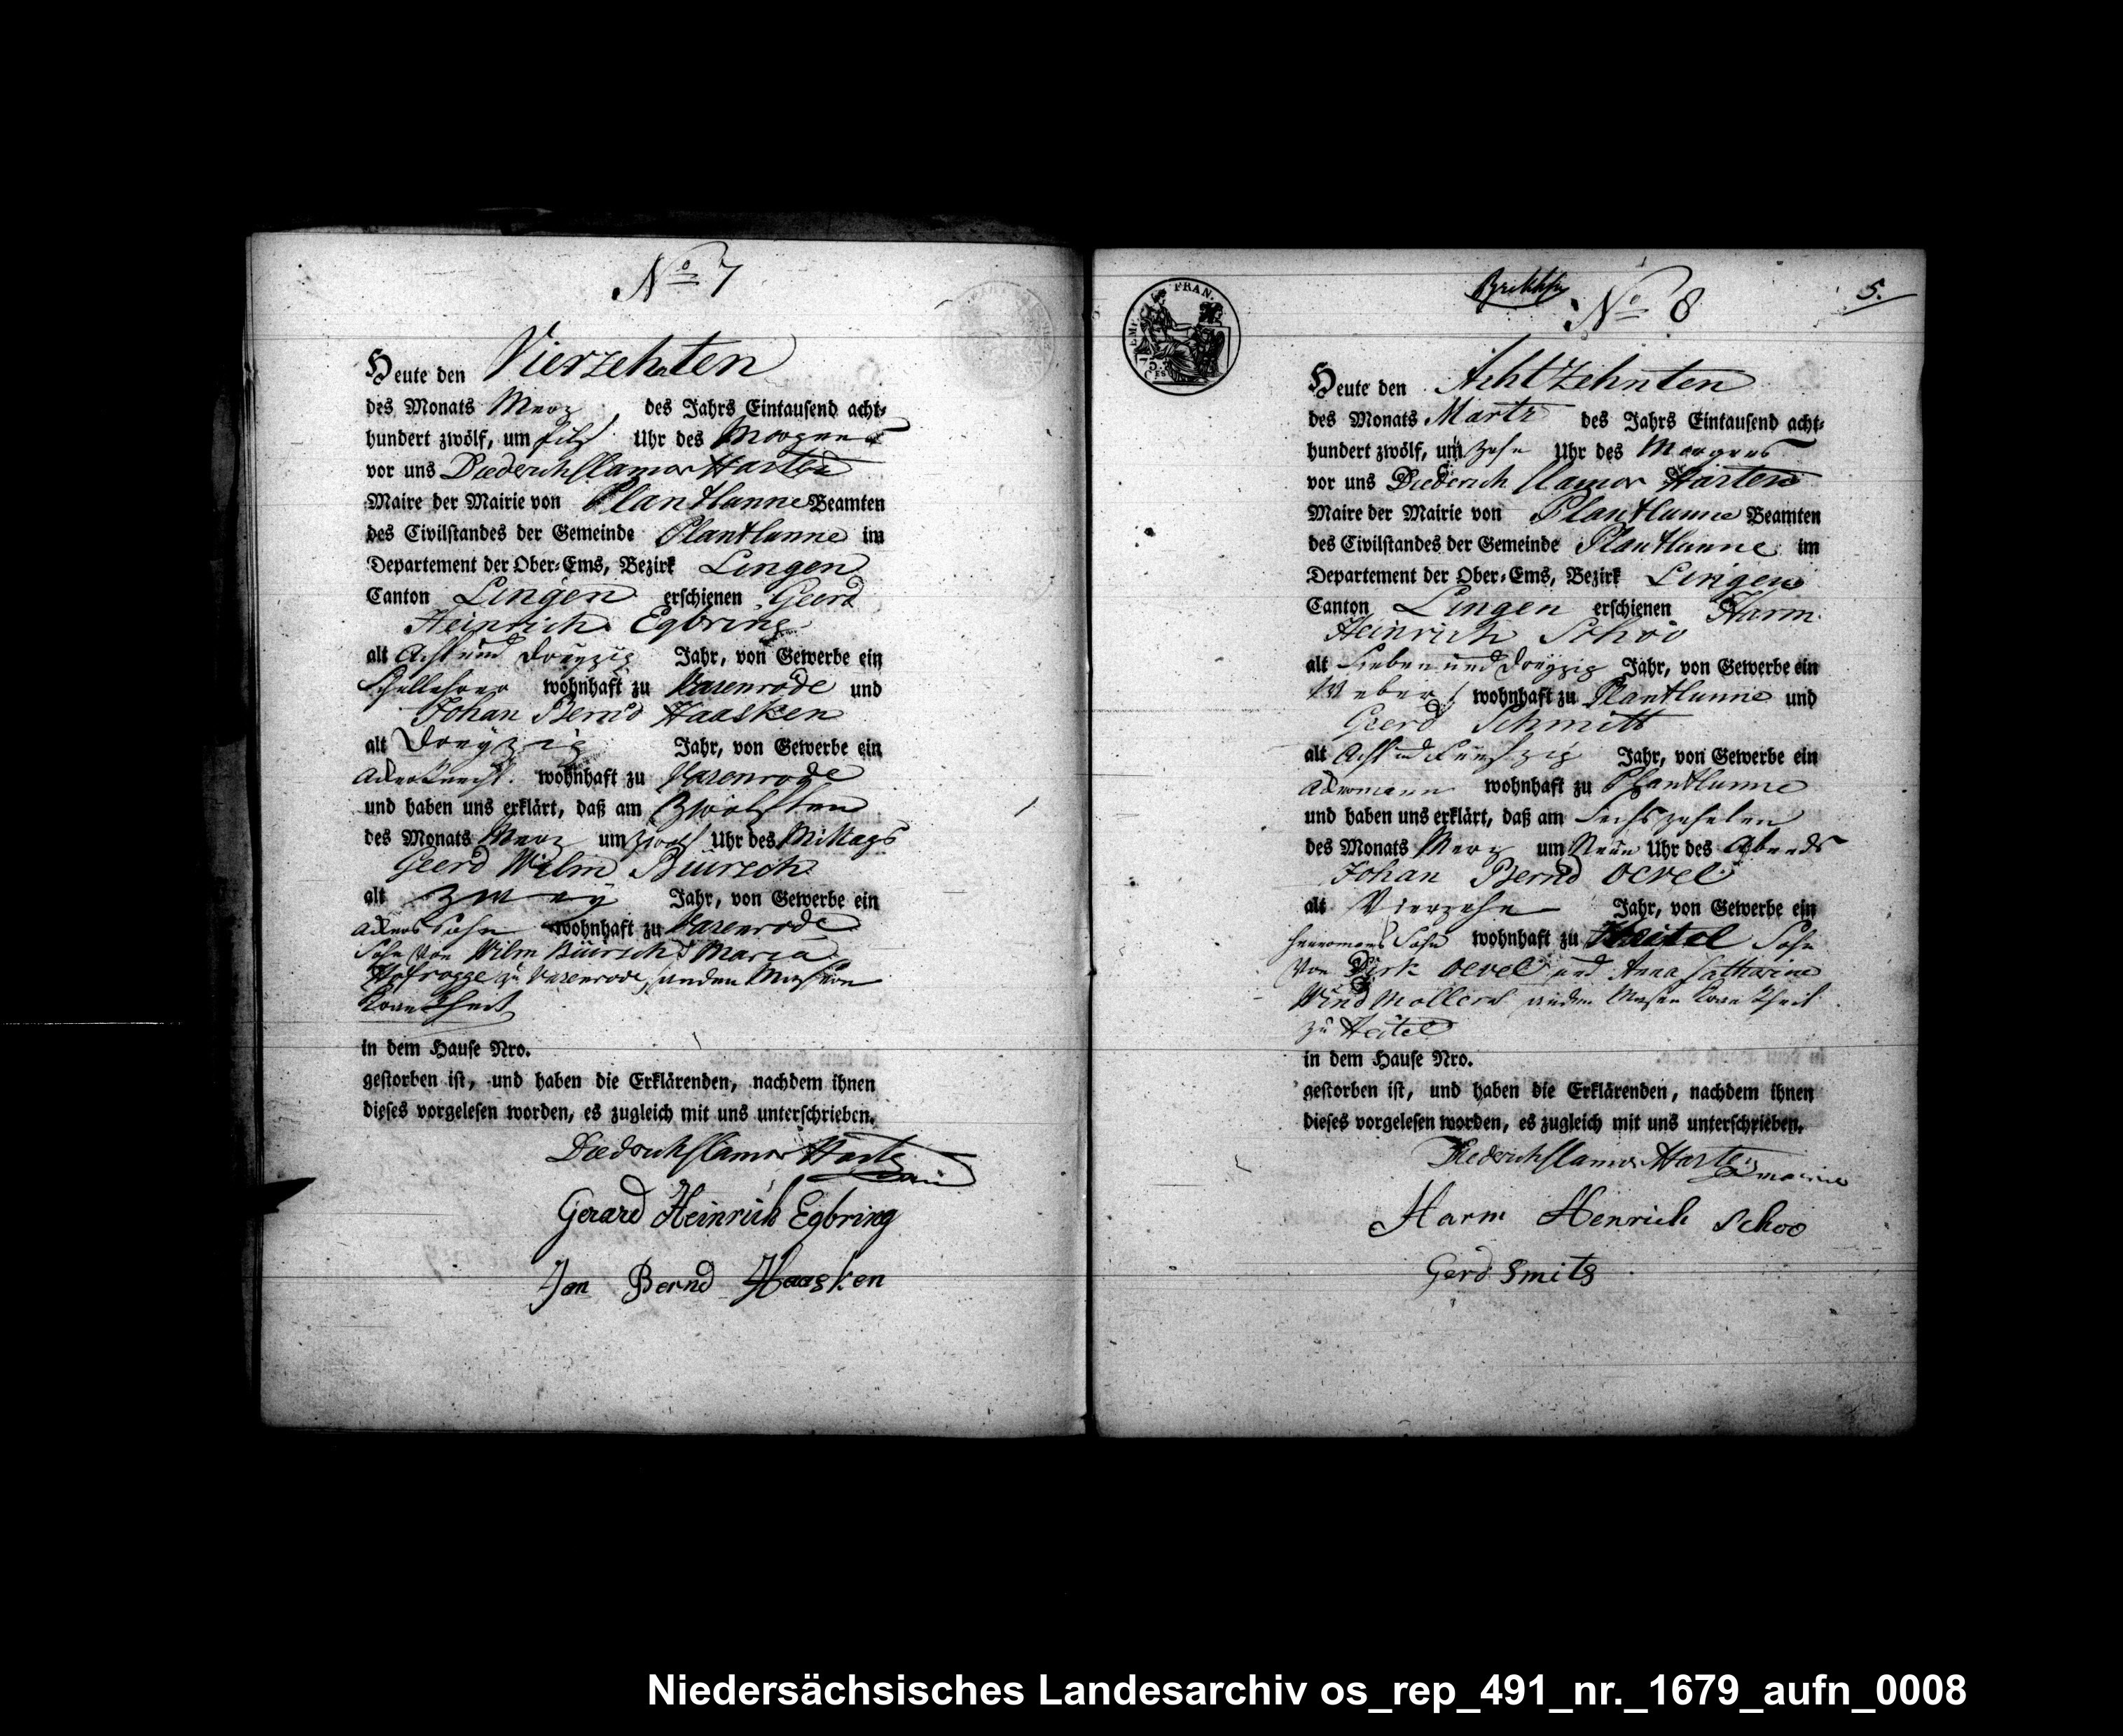 No 7
Heute den Vierzehnten
des Monats Merz des Jahrs Eintausend acht-
hundert zwölf, um Uhr des Morgens
vor uns Diederich Clamor Harten
Maire der Mairie von Plantlunne Beamten
des Civilstandes der Gemeinde Plantlunne im
Departement der Ober-Ems, Bezirk Lingen
Canton Lingen erschienen Geerd
Heinrich Egbring
alt Acht und Dreyzig Jahr, von Gewerbe ein
Schullehrer wohnhaft zu Varenrode und
Johan Bernd Haasken
alt Dreyzig Jahr, von Gewerbe ein
Ackerknecht wohnhaft zu Varenrode
und haben uns erklärt, daß am Zwölften
des Monats Merz um zwölf Uhr des Mittags
Geerd Wilm Büürsch
alt zwey Jahr, von Gewerbe ein
Ackers Sohn wohnhaft zu Varenrode
Sohn von Wilm Büürsch Maria
zu Varenrode, an den Masern
Krankheit
in dem Hause Nro.
gestorben ist, und haben die Erklärenden, nachdem ihnen
dieses vorgelesen worden, es zugleich mit uns unterschrieben.
Diederich Clamor Harten
Gerard Heinrich Egbring
Jan Bernd Haasken
FRAN.
No 8
5.
Heute den Achtzehnten
des Monats Martz des Jahrs Eintausend acht-
hundert zwölf, um Zehn Uhr des Morgens
vor uns Diederich Clamor Harten
Maire der Mairie von Plantlunne Beamten
des Civilstandes der Gemeinde Plantlunne im
Departement der Ober-Ems, Bezirk Lingen
Canton Lingen erschienen Harm
Heinrich Schoo
alt Sieben und Dreyzig Jahr, von Gewerbe ein
Weber wohnhaft zu Plantlunne und
Gerd Schmitt
alt Acht und Fünfzig Jahr, von Gewerbe ein
Ackermann wohnhaft zu Plantlunne
und haben uns erklärt, daß am Sechszehnten
des Monats Merz um Neün Uhr des Abends
Johan Bernd Oevel
alt Vierzehn Jahr, von Gewerbe ein
Sohn wohnhaft zu Heitel Sohn
von Dirk Oevel und Anna Catharina
Wind Mollers an den Masern Krankheit
zu Heitel
in dem Hause Nro.
gestorben ist, und haben die Erklärenden, nachdem ihnen
dieses vorgelesen worden, es zugleich mit uns unterschrieben.
Diederich Clamor Harten maire
Harm Henrich Schoo
Gerd Smits
Niedersächsisches Landesarchiv os_rep_491_nr._1679_aufn_0008